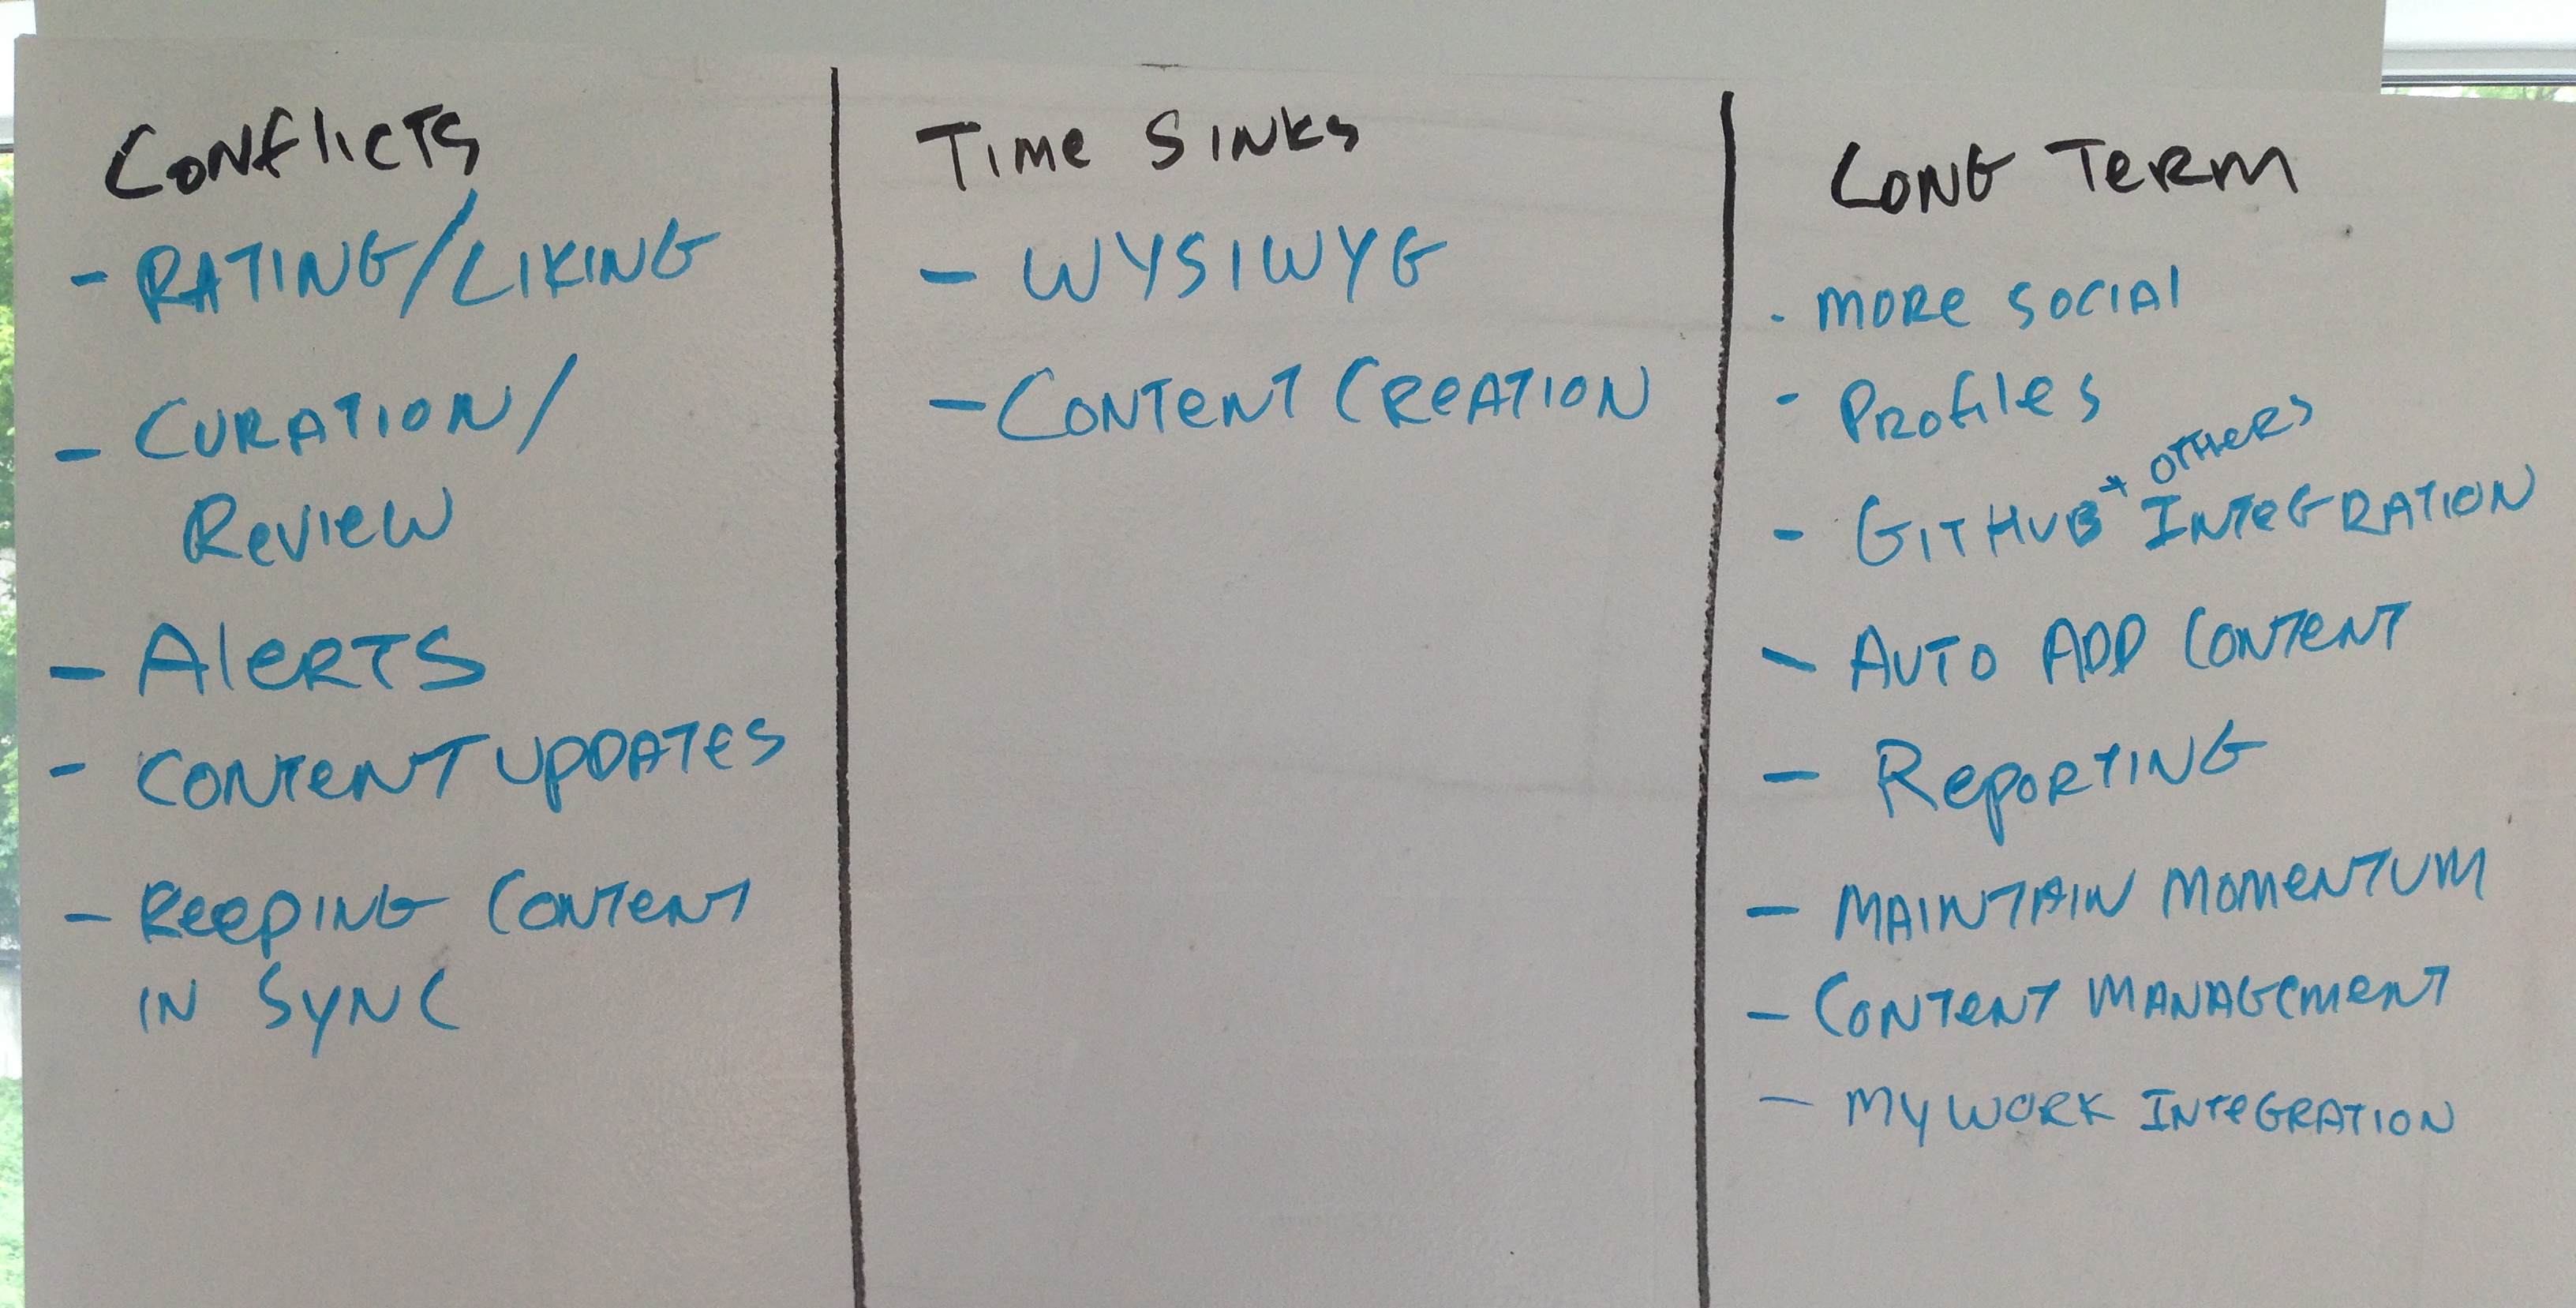 Conflicts
- RATING/LIKING
- CURATION/
Review
- Alerts
- Content updates
- Keeping Content
in Sync
Time Sinks
- WYSIWYG
- Content Creation
Long Term
- more social
- Profiles
+ others
- GitHub Integration
- Auto Add Content
- Reporting
- Maintain Momentum
- Content Management
- My Work Integration